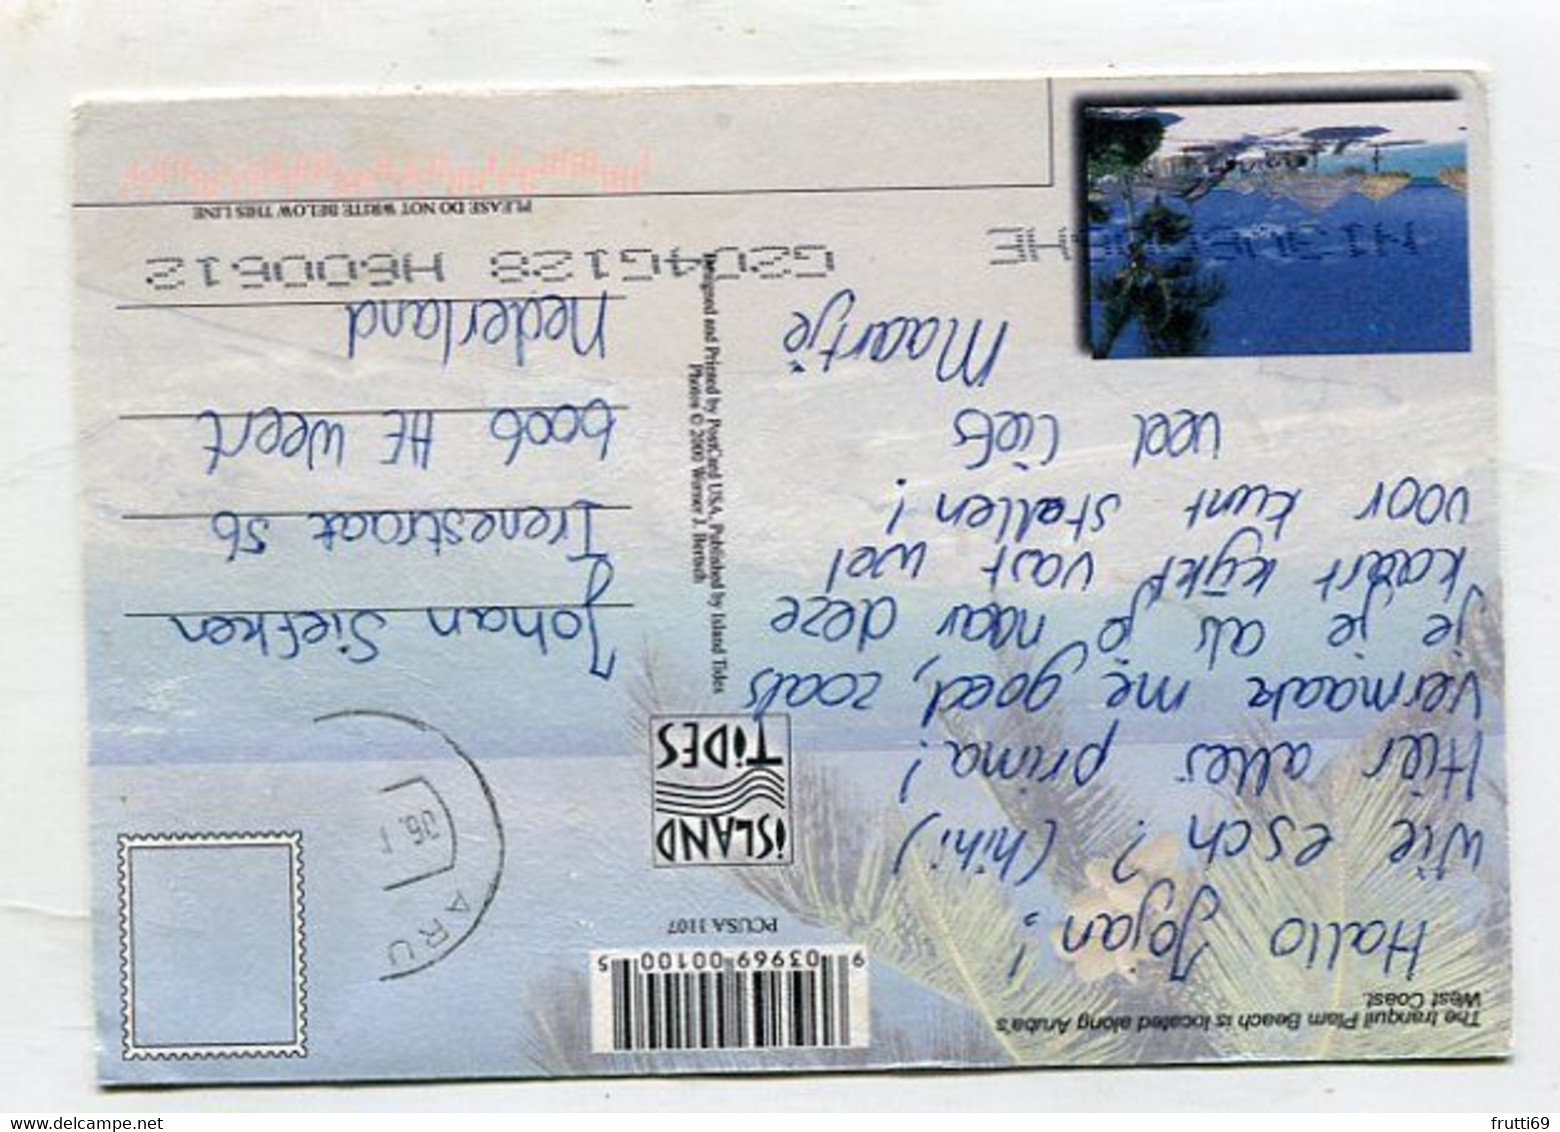 The tranquil Plam Beach is located along Aruba's
West Coast.
Hallo Jojan!,
Wie esch? (hihi)
Hier alles prima!
Vermaak me goed, zoals
je je als je naar deze
kaart kijkt vast wel
voor kunt stellen!
veel liefs
Maartje
9 03969 00100 5
PCUSA 1107
ISLAND
TIDES
Designed and Printed by PostCard USA, Published by Island Tides
Photos © 2000 Werner J. Bertsch
ARU
06.1
Johan Siefken
Irenestraat 56
6006 HE Weert
Nederland
G204G128 H600612
PLEASE DO NOT WRITE BELOW THIS LINE
frutti69